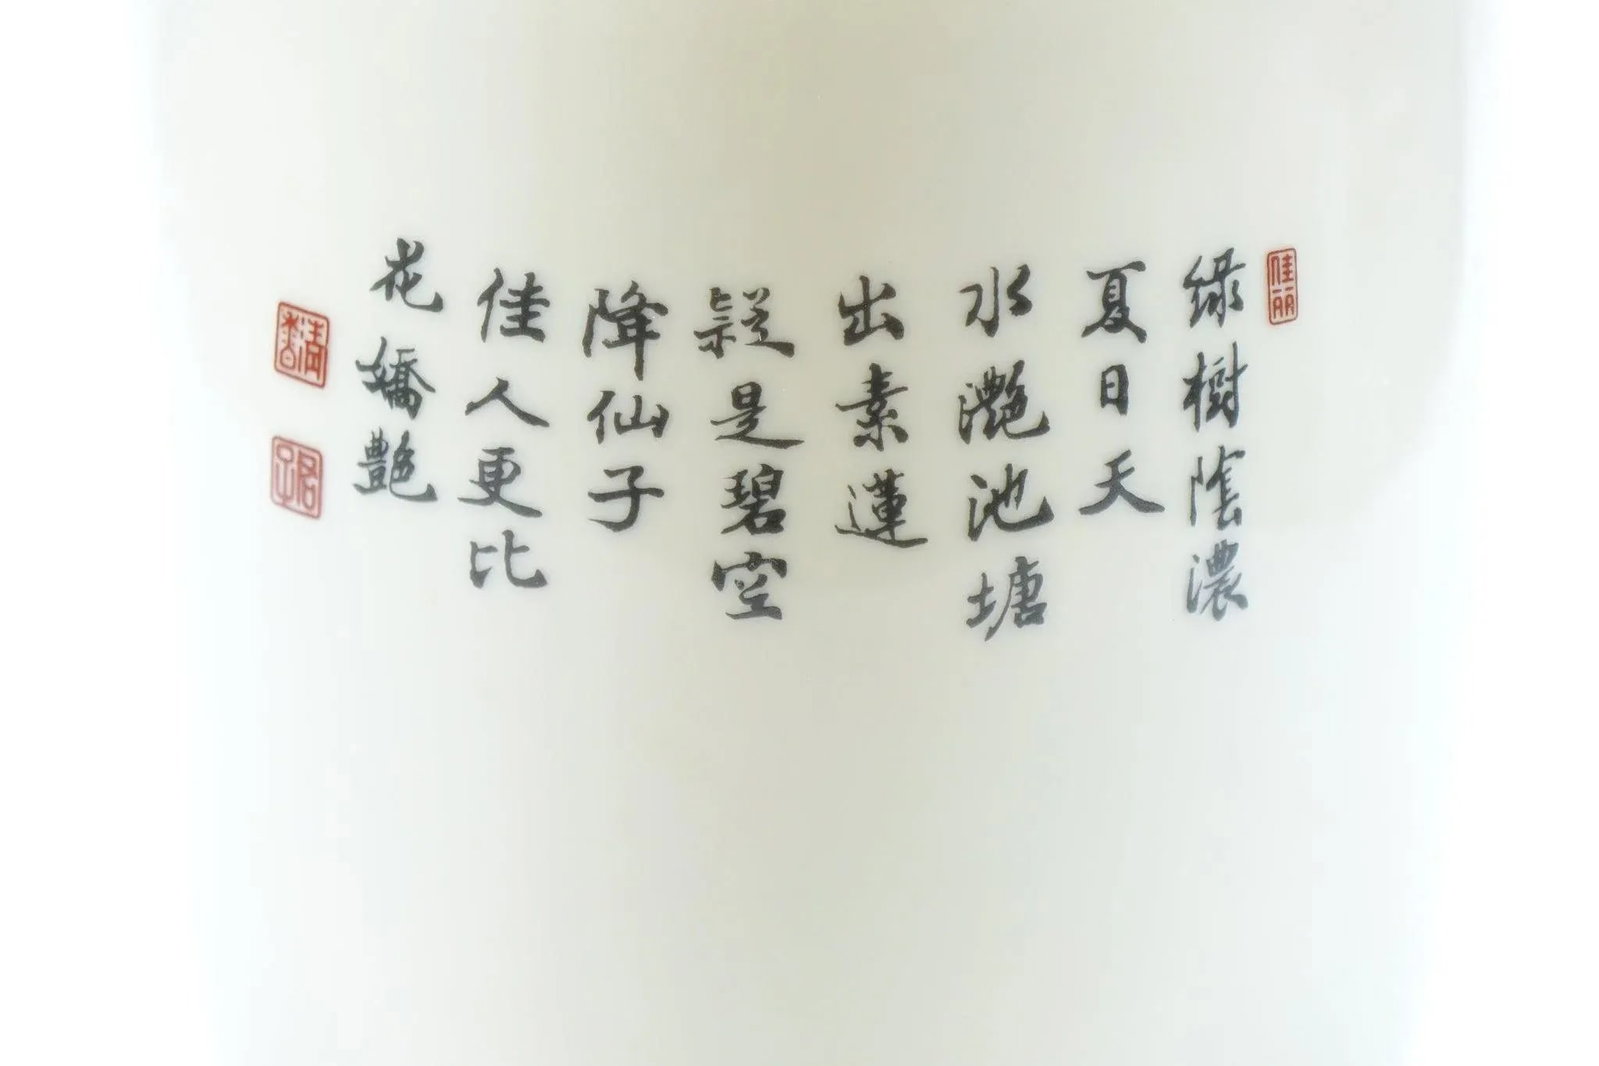 佳丽
綠樹陰濃
夏日天
水灔池塘
出素蓮
疑是碧空
降仙子
佳人更比
花嬌艷
清香
君子